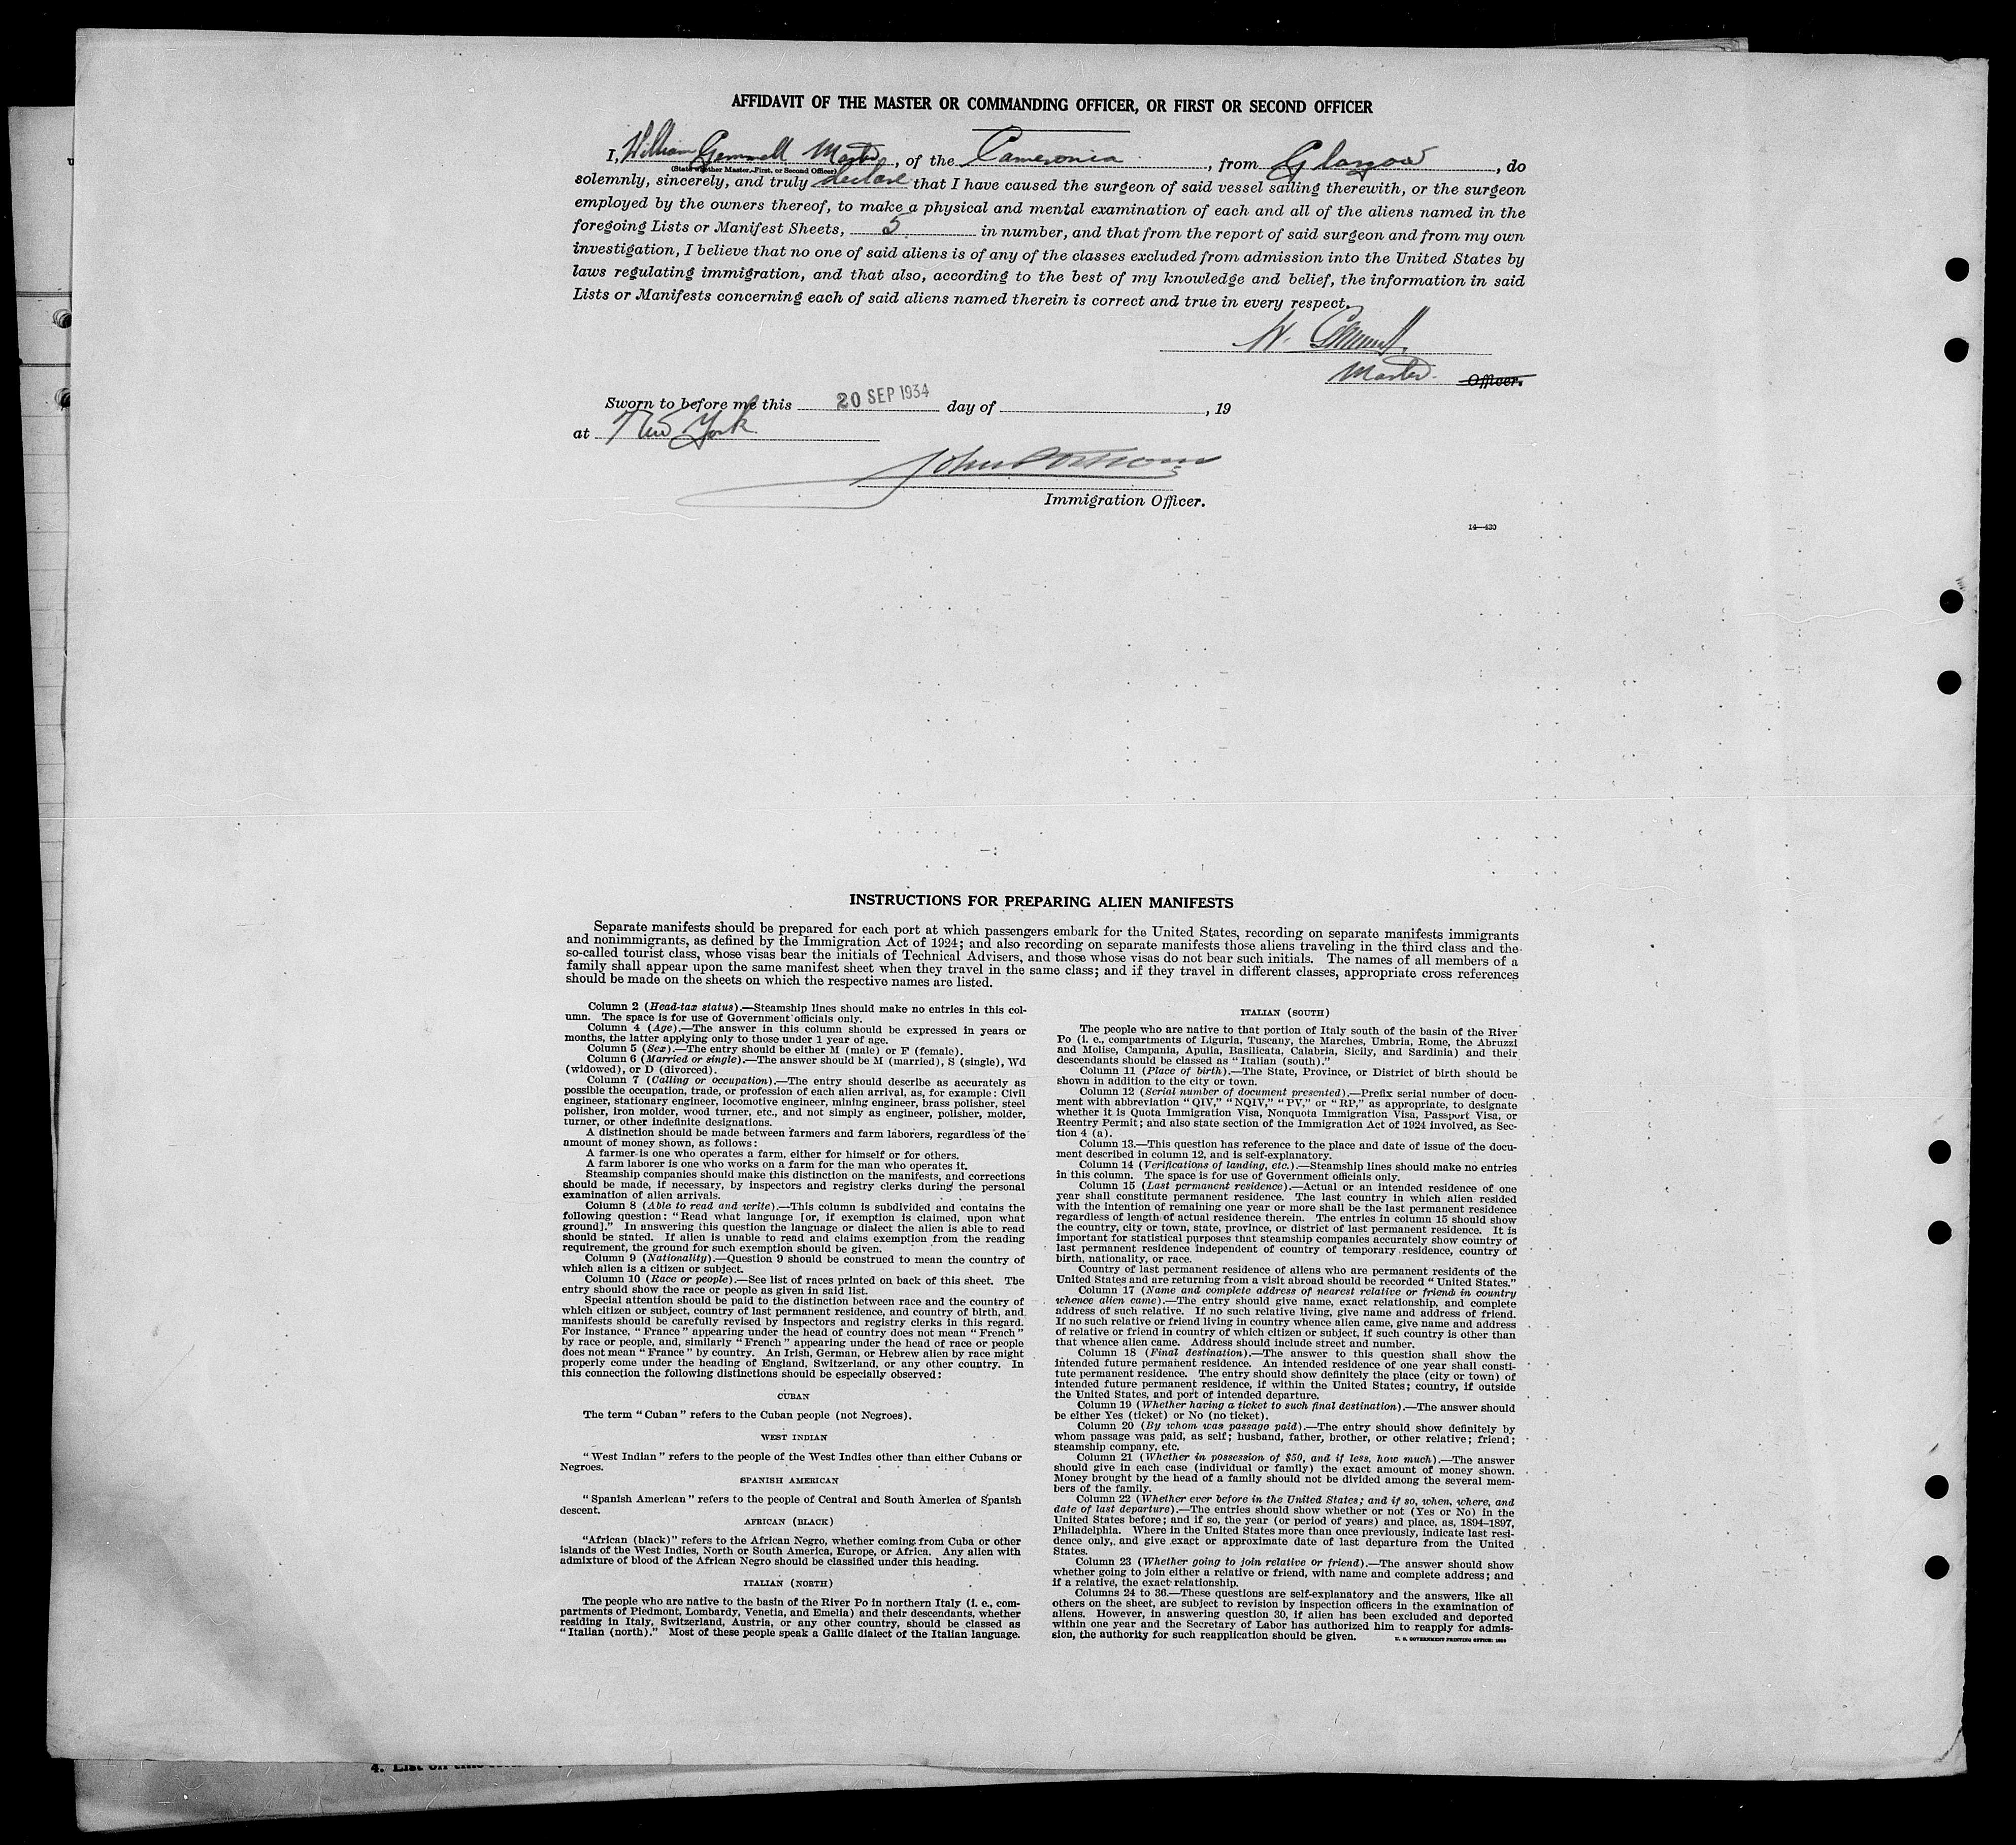 AFFIDAVIT OF THE MASTER OR COMMANDING OFFICER, OR FIRST OR SECOND OFFICER
I, William Gemmell Master, of the Cameronia, from Glasgow, do
(State whether Master, First, or Second Officer)
solemnly, sincerely, and truly declare that I have caused the surgeon of said vessel sailing therewith, or the surgeon
employed by the owners thereof, to make a physical and mental examination of each and all of the aliens named in the
foregoing Lists or Manifest Sheets, 5 in number, and that from the report of said surgeon and from my own
investigation, I believe that no one of said aliens is of any of the classes excluded from admission into the United States by
laws regulating immigration, and that also, according to the best of my knowledge and belief, the information in said
Lists or Manifests concerning each of said aliens named therein is correct and true in every respect.
W. Gemmell
Master Officer.
Sworn to before me this 20 SEP 1934 day of , 19
at New York
Immigration Officer.
14—430
INSTRUCTIONS FOR PREPARING ALIEN MANIFESTS
Separate manifests should be prepared for each port at which passengers embark for the United States, recording on separate manifests immigrants
and nonimmigrants, as defined by the Immigration Act of 1924; and also recording on separate manifests those aliens traveling in the third class and the
so-called tourist class, whose visas bear the initials of Technical Advisers, and those whose visas do not bear such initials. The names of all members of a
family shall appear upon the same manifest sheet when they travel in the same class; and if they travel in different classes, appropriate cross references
should be made on the sheets on which the respective names are listed.
Column 2 (Head-tax status).—Steamship lines should make no entries in this col-
umn. The space is for use of Government officials only.
Column 4 (Age).—The answer in this column should be expressed in years or
months, the latter applying only to those under 1 year of age.
Column 5 (Sex).—The entry should be either M (male) or F (female).
Column 6 (Married or single).—The answer should be M (married), S (single), Wd
(widowed), or D (divorced).
Column 7 (Calling or occupation).—The entry should describe as accurately as
possible the occupation, trade, or profession of each alien arrival, as, for example: Civil
engineer, stationary engineer, locomotive engineer, mining engineer, brass polisher, steel
polisher, iron molder, wood turner, etc., and not simply as engineer, polisher, molder,
turner, or other indefinite designations.
A distinction should be made between farmers and farm laborers, regardless of the
amount of money shown, as follows:
A farmer is one who operates a farm, either for himself or for others.
A farm laborer is one who works on a farm for the man who operates it.
Steamship companies should make this distinction on the manifests, and corrections
should be made, if necessary, by inspectors and registry clerks during the personal
examination of alien arrivals.
Column 8 (Able to read and write).—This column is subdivided and contains the
following question: “Read what language [or, if exemption is claimed, upon what
ground].” In answering this question the language or dialect the alien is able to read
should be stated. If alien is unable to read and claims exemption from the reading
requirement, the ground for such exemption should be given.
Column 9 (Nationality).—Question 9 should be construed to mean the country of
which alien is a citizen or subject.
Column 10 (Race or people).—See list of races printed on back of this sheet. The
entry should show the race or people as given in said list.
Special attention should be paid to the distinction between race and the country of
which citizen or subject, country of last permanent residence, and country of birth, and
manifests should be carefully revised by inspectors and registry clerks in this regard.
For instance, “France” appearing under the head of country does not mean “French”
by race or people, and, similarly “French” appearing under the head of race or people
does not mean “France” by country. An Irish, German, or Hebrew alien by race might
properly come under the heading of England, Switzerland, or any other country. In
this connection the following distinctions should be especially observed:
CUBAN
The term “Cuban” refers to the Cuban people (not Negroes).
WEST INDIAN
“West Indian” refers to the people of the West Indies other than either Cubans or
Negroes.
SPANISH AMERICAN
“Spanish American” refers to the people of Central and South America of Spanish
descent.
AFRICAN (BLACK)
“African (black)” refers to the African Negro, whether coming from Cuba or other
islands of the West Indies, North or South America, Europe, or Africa. Any alien with
admixture of blood of the African Negro should be classified under this heading.
ITALIAN (NORTH)
The people who are native to the basin of the River Po in northern Italy (i. e., com-
partments of Piedmont, Lombardy, Venetia, and Emelia) and their descendants, whether
residing in Italy, Switzerland, Austria, or any other country, should be classed as
“Italian (north).” Most of these people speak a Gallic dialect of the Italian language.
ITALIAN (SOUTH)
The people who are native to that portion of Italy south of the basin of the River
Po (i. e., compartments of Liguria, Tuscany, the Marches, Umbria, Rome, the Abruzzi
and Molise, Campania, Apulia, Basilicata, Calabria, Sicily, and Sardinia) and their
descendants should be classed as “Italian (south).”
Column 11 (Place of birth).—The State, Province, or District of birth should be
shown in addition to the city or town.
Column 12 (Serial number of document presented).—Prefix serial number of docu-
ment with abbreviation “QIV,” “NQIV,” “PV,” or “RP,” as appropriate, to designate
whether it is Quota Immigration Visa, Nonquota Immigration Visa, Passport Visa, or
Reentry Permit; and also state section of the Immigration Act of 1924 involved, as Sec-
tion 4 (a).
Column 13.—This question has reference to the place and date of issue of the docu-
ment described in column 12, and is self-explanatory.
Column 14 (Verifications of landing, etc.).—Steamship lines should make no entries
in this column. The space is for use of Government officials only.
Column 15 (Last permanent residence).—Actual or an intended residence of one
year shall constitute permanent residence. The last country in which alien resided
with the intention of remaining one year or more shall be the last permanent residence
regardless of length of actual residence therein. The entries in column 15 should show
the country, city or town, state, province, or district of last permanent residence. It is
important for statistical purposes that steamship companies accurately show country of
last permanent residence independent of country of temporary residence, country of
birth, nationality, or race.
Country of last permanent residence of aliens who are permanent residents of the
United States and are returning from a visit abroad should be recorded “United States.”
Column 17 (Name and complete address of nearest relative or friend in country
whence alien came).—The entry should give name, exact relationship, and complete
address of such relative. If no such relative living, give name and address of friend.
If no such relative or friend living in country whence alien came, give name and address
of relative or friend in country of which citizen or subject, if such country is other than
that whence alien came. Address should include street and number.
Column 18 (Final destination).—The answer to this question shall show the
intended future permanent residence. An intended residence of one year shall consti-
tute permanent residence. The entry should show definitely the place (city or town) of
intended future permanent residence, if within the United States; country, if outside
the United States, and port of intended departure.
Column 19 (Whether having a ticket to such final destination).—The answer should
be either Yes (ticket) or No (no ticket).
Column 20 (By whom was passage paid).—The entry should show definitely by
whom passage was paid, as self; husband, father, brother, or other relative; friend;
steamship company, etc.
Column 21 (Whether in possession of $50, and if less, how much).—The answer
should give in each case (individual or family) the exact amount of money shown.
Money brought by the head of a family should not be divided among the several mem-
bers of the family.
Column 22 (Whether ever before in the United States; and if so, when, where, and
date of last departure).—The entries should show whether or not (Yes or No) in the
United States before; and if so, the year (or period of years) and place, as, 1894–1897,
Philadelphia. Where in the United States more than once previously, indicate last resi-
dence only, and give exact or approximate date of last departure from the United
States.
Column 23 (Whether going to join relative or friend).—The answer should show
whether going to join either a relative or friend, with name and complete address; and
if a relative, the exact relationship.
Columns 24 to 36.—These questions are self-explanatory and the answers, like all
others on the sheet, are subject to revision by inspection officers in the examination of
aliens. However, in answering question 30, if alien has been excluded and deported
within one year and the Secretary of Labor has authorized him to reapply for admis-
sion, the authority for such reapplication should be given.
U. S. GOVERNMENT PRINTING OFFICE: